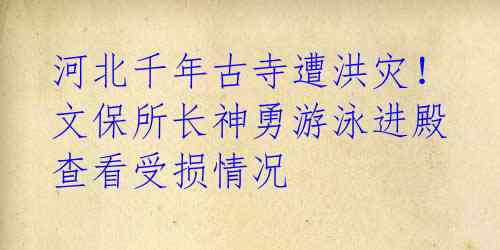 河北千年古寺遭洪灾！
文保所长神勇游泳进殿
查看受损情况